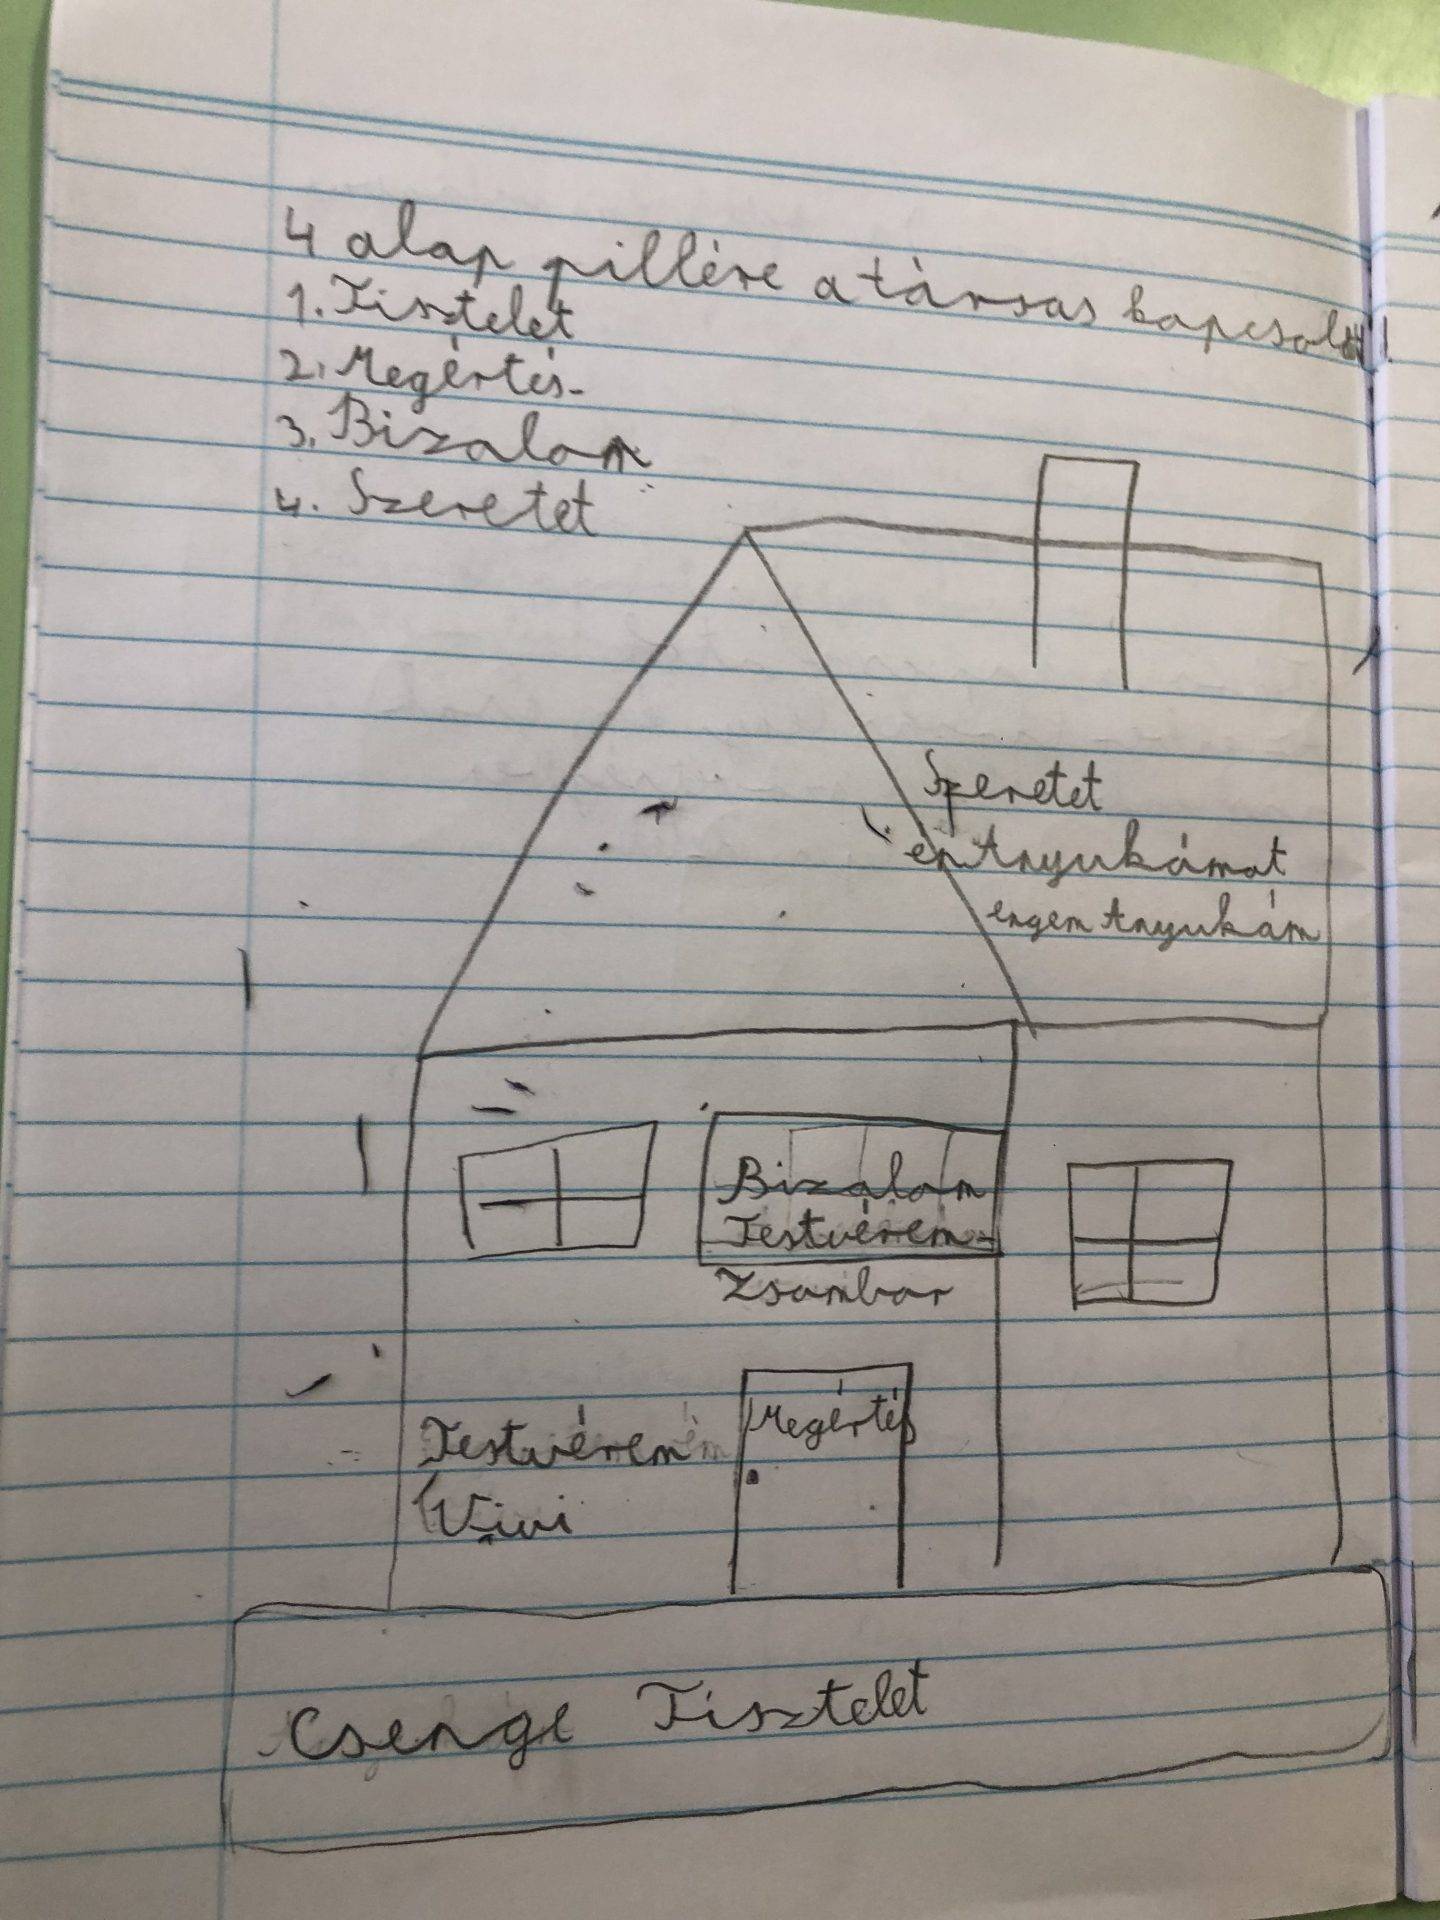 4 alap pillére a társas
1. Tisztelet
2. Megértés-
3. Bizalom
4. Szeretet
Szeretet
én Anyukámat
engem Anyukám
Bizalom
Testvérem-
Zsombor
Megértés
Testvérem
Vivi
Csenge Tisztelet